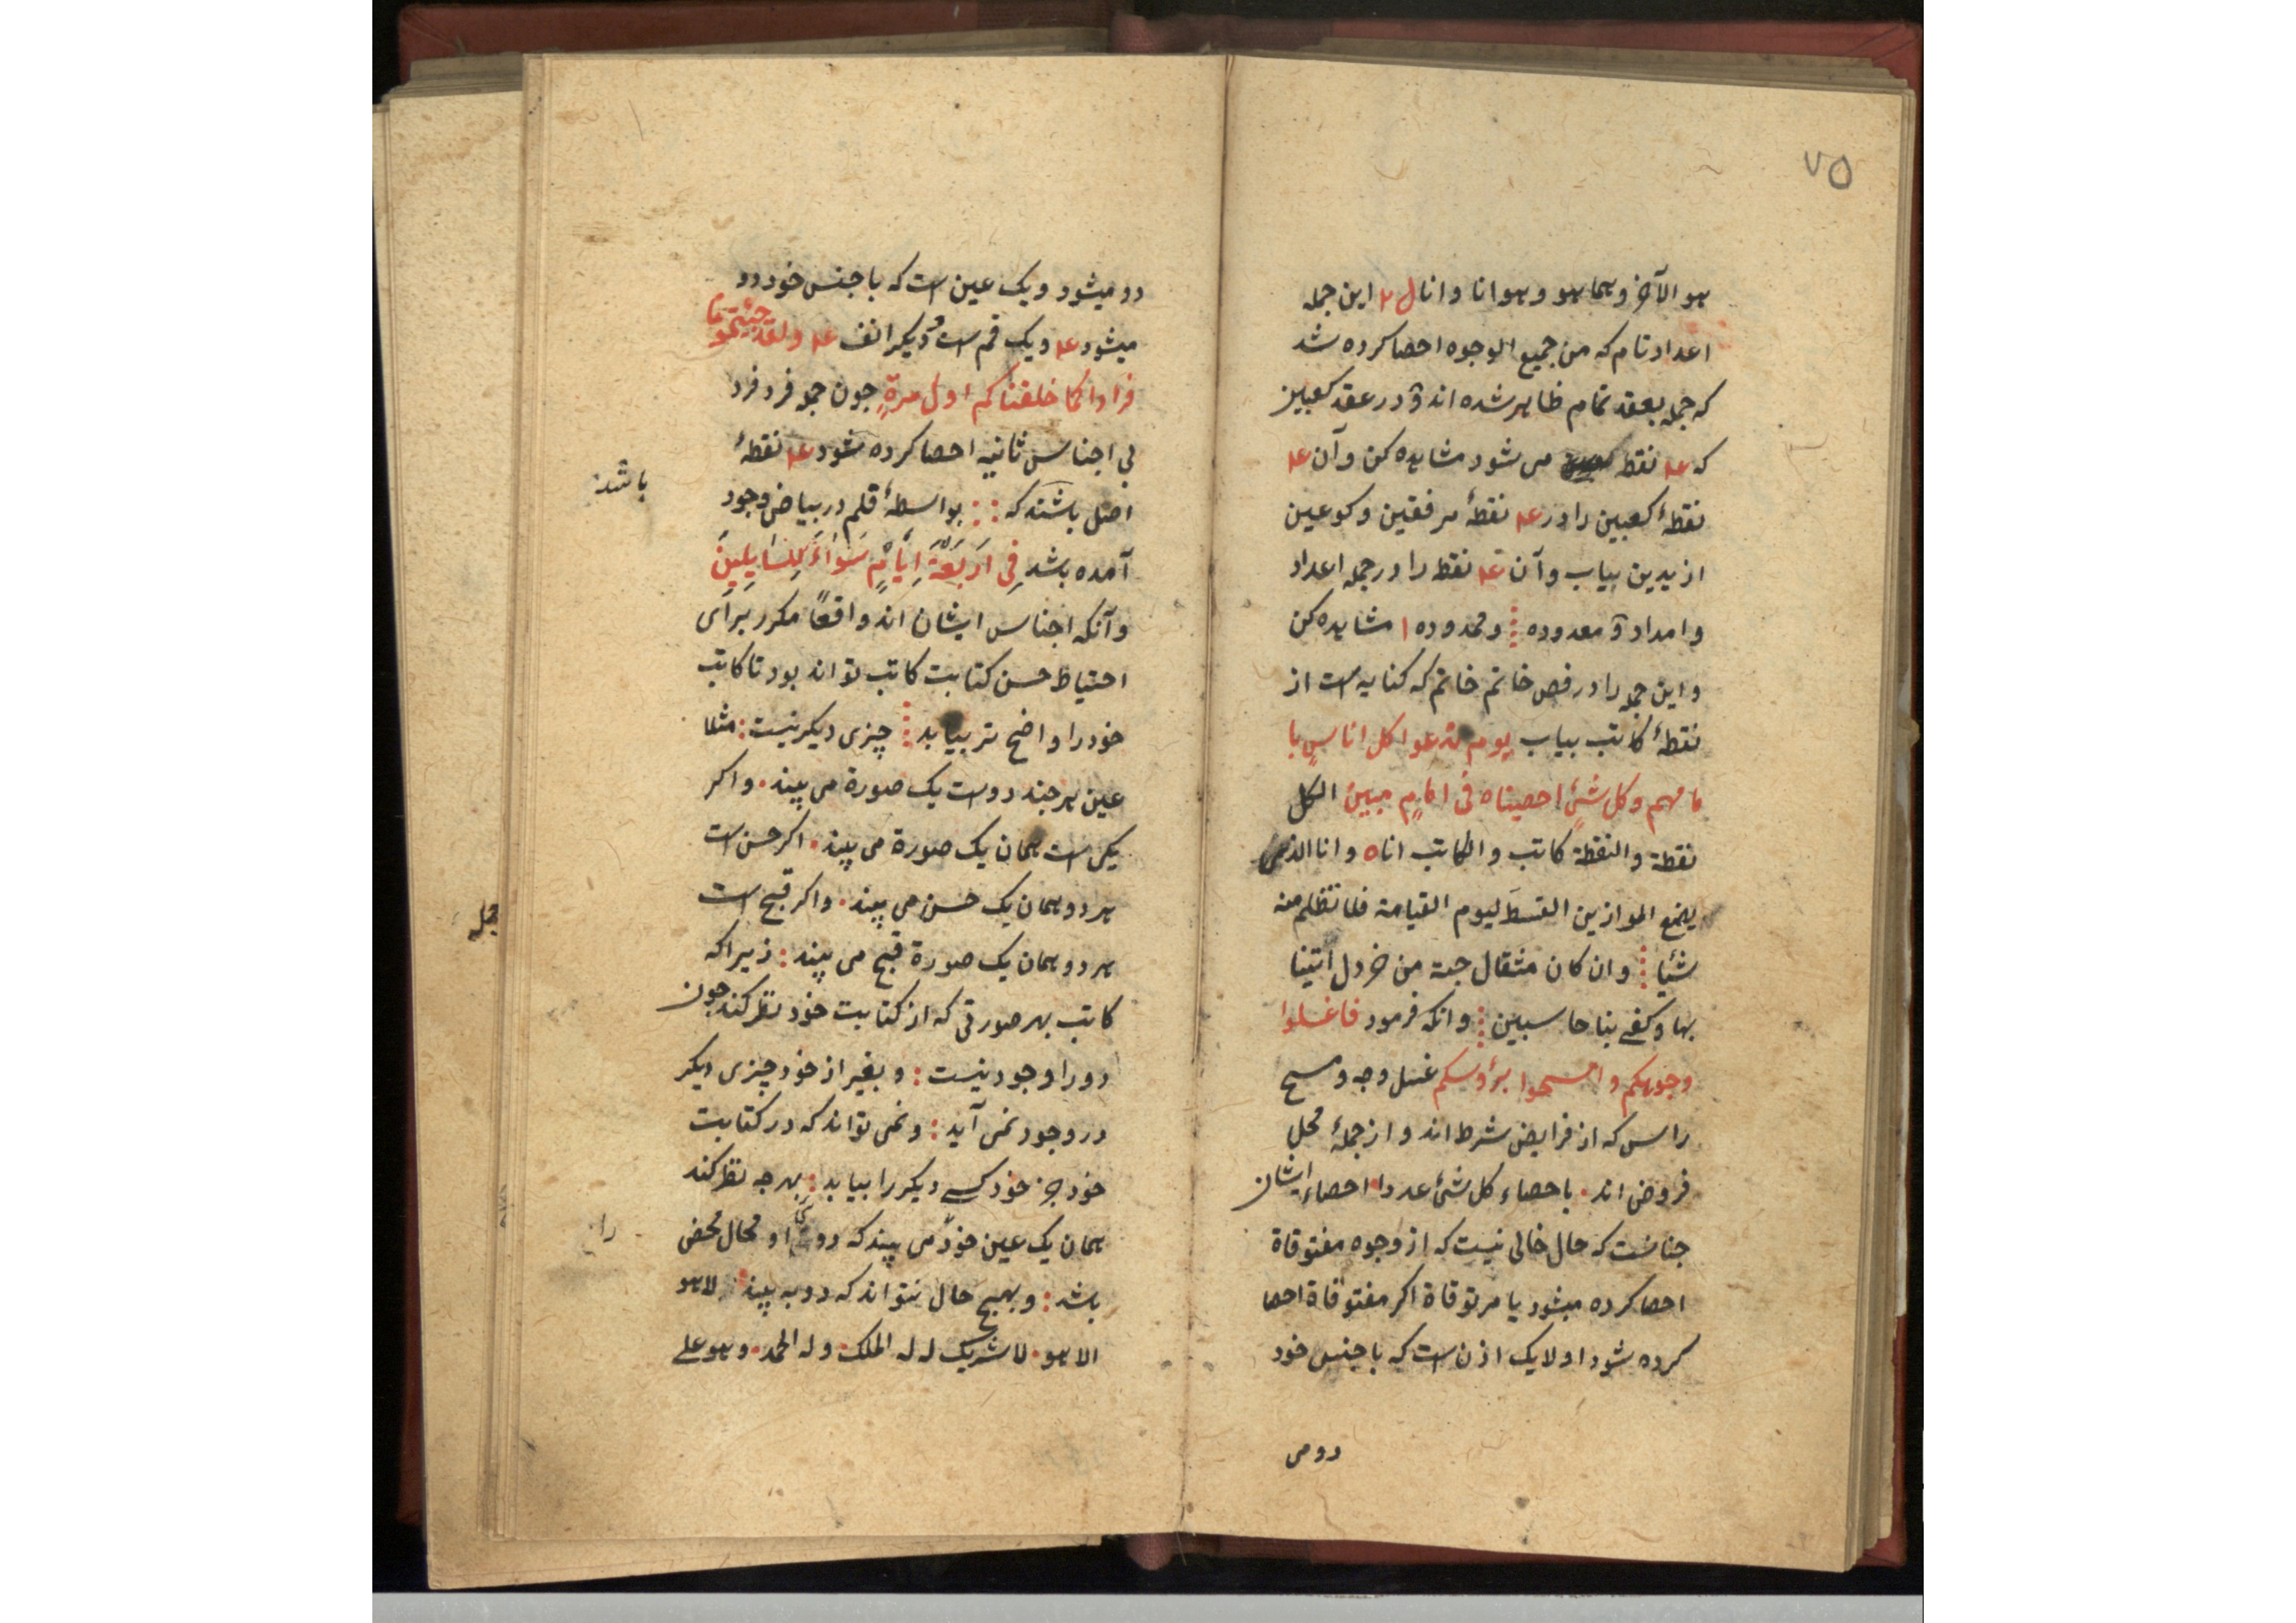 ۷۵
هو الآخر وهما هو وهو انا وانا ل ۲ این جمله
اعداد تام که من جمیع الوجوه احصا کرده شد
که جمله بعقد تمام ظاهر شده اند و در عقد کعبین
که ۴ نقط می شود مشاهده کن وآن ۴
نقطهٔ کعبین را در ۴ نقطهٔ مرفقین وکوعین
از یدین بیاب وآن ۴ نقط را در جمله اعداد
وامداد و معدوده ومحدوده ا مشاهده کن
واین جمله را در فص خاتم خاتم که کنایه است از
نقطهٔ کاتب بیاب یوم ندعوا کل اناسٍ با
مامهم وکل شیٍٔ احصیناه فی امامٍ مبین الکل
نقطة والنقطة کاتب والکاتب انا ه وانا الذی
یضع الموازین القسطَ لیوم القیامة فلا تظلم منه
شئیا وان کان مثقال حبة من خردل اتینا
بها وکفی بنا حاسبین : وانکه فرمود فاغسلوا
وجوهکم وامسحوا برؤسکم غسل وجه ومسح
راس که از فرایض شرط اند واز جملهٔ محل
فروض اند . باحصاء کل شیٔ عددا احصاء ایشان
جنانست که حال خالی نیست که از وجوه مفتوقاة
احصا کرده میشود یا مرتوقاة اکر مفتوقاة احصا
کرده شود اولا یک اذن است که با جنس خود
دو می
دو میشود ویک عین است که با جنس خود دو
میشود ۴ ویک فم است و دیکر انف ۴ ولقد جئتمونا
فرادا کما خلقناکم اول مرةٍ جون جمله فرد فرد
بی اجناس ثانیه احصا کرده شود ۴ نقطهٔ
اصل باشند که : : بواسطهٔ قلم در بیاض وجود
باشد
آمده باشد فِی اَربَعَةِ اَیّامٍ سَوٰاءً لِلسٰایِلِینَ
وآنکه اجناس ایشان اند واقعاً مکرر برای
احتیاط حسن کتابت کاتب تواند بود تا کاتب
خود را واضح تر بیابد چیزی دیکر نیست : مثلا
عین هرجند دو است یک صورة می بیند . واکر
یکی است همان یک صورة می بیند . اکر حسن است
هر دو همان یک حسن می بیند . واکر قبح است
هر دو همان یک صورة قبح می بیند : زیرا که
کاتب بهر صورتی که از کتابت خود نظر کند جون
دو را وجود نیست : وبغیر از خود چیزی دیکر
در وجود نمی آید : ونمی تواند که در کتابت
خود جز خود کسی دیکر را بیابد : بهرجه نظر کند
همان یک عین خود می بیند که دوئی او محال محض
را
باشد : وبهیچ حال نتواند که دو به بیند : لا هو
الا هو . لا شریک له له الملک وله الحمد . وهو علی
جمله